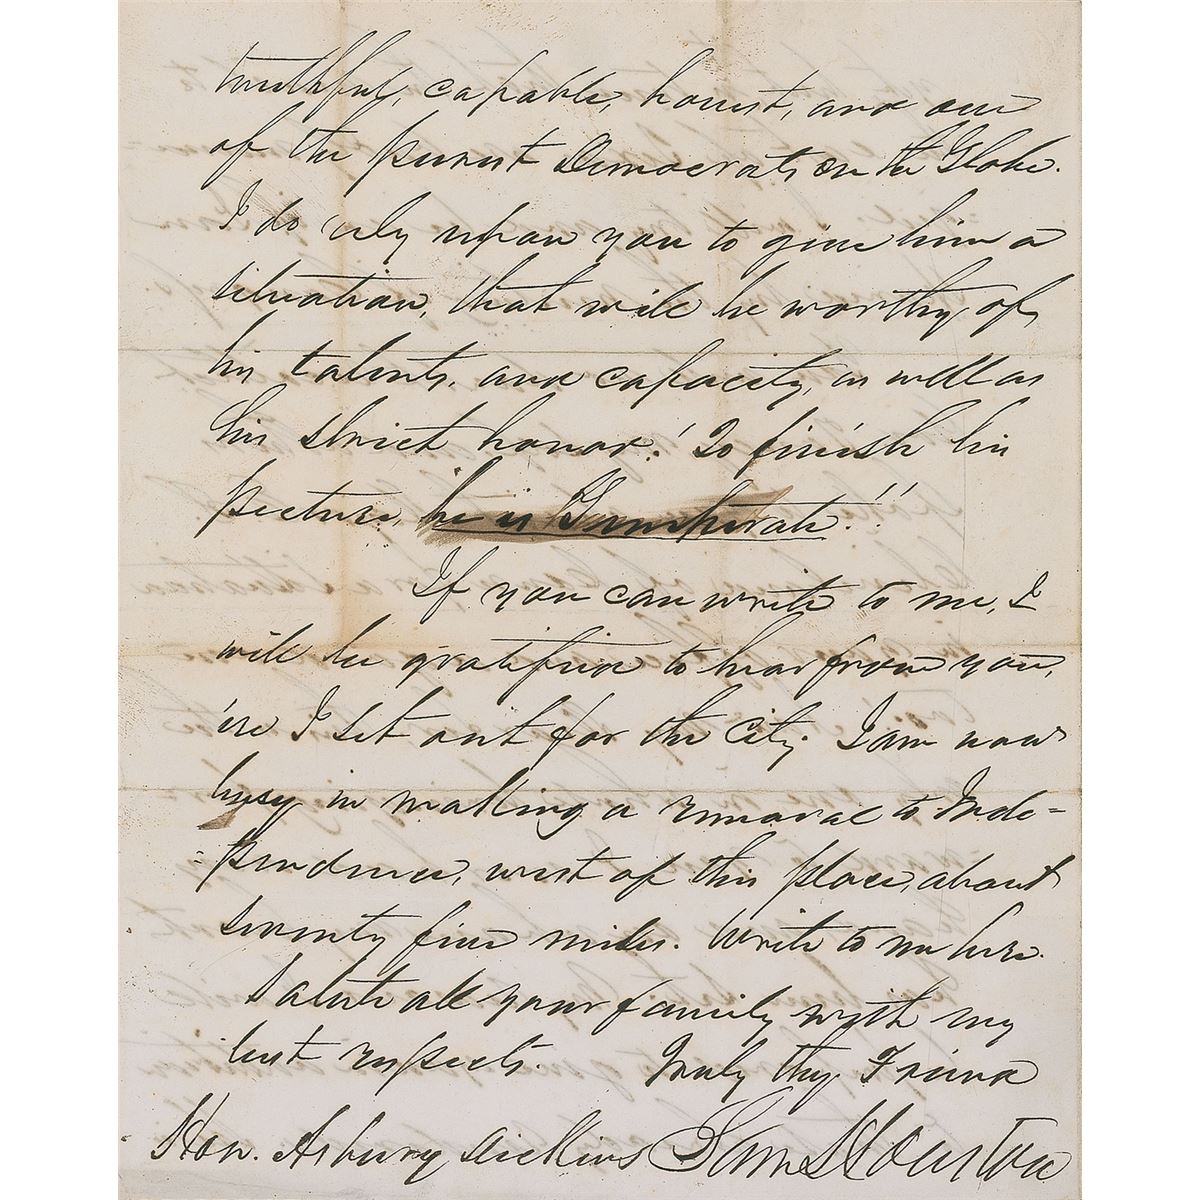 truthful, capable, honest, and one
of the purest Democrats on the Globe.
I do rely upon you to give him a
situation, that will be worthy of
his talents, and capacity, as well as
his strict honor! To finish his
picture, he is Temperate!!
If you can write to me, I
will be gratified to hear from you,
'ere I set out for the City. I am now
busy in making a removal to Inde=
=pendence, west of this place, about
seventy five miles. Write to me here.
Salute all your family with my
best respects. Truly thy Friend
Hon. Asbury Dickins Sam Houston